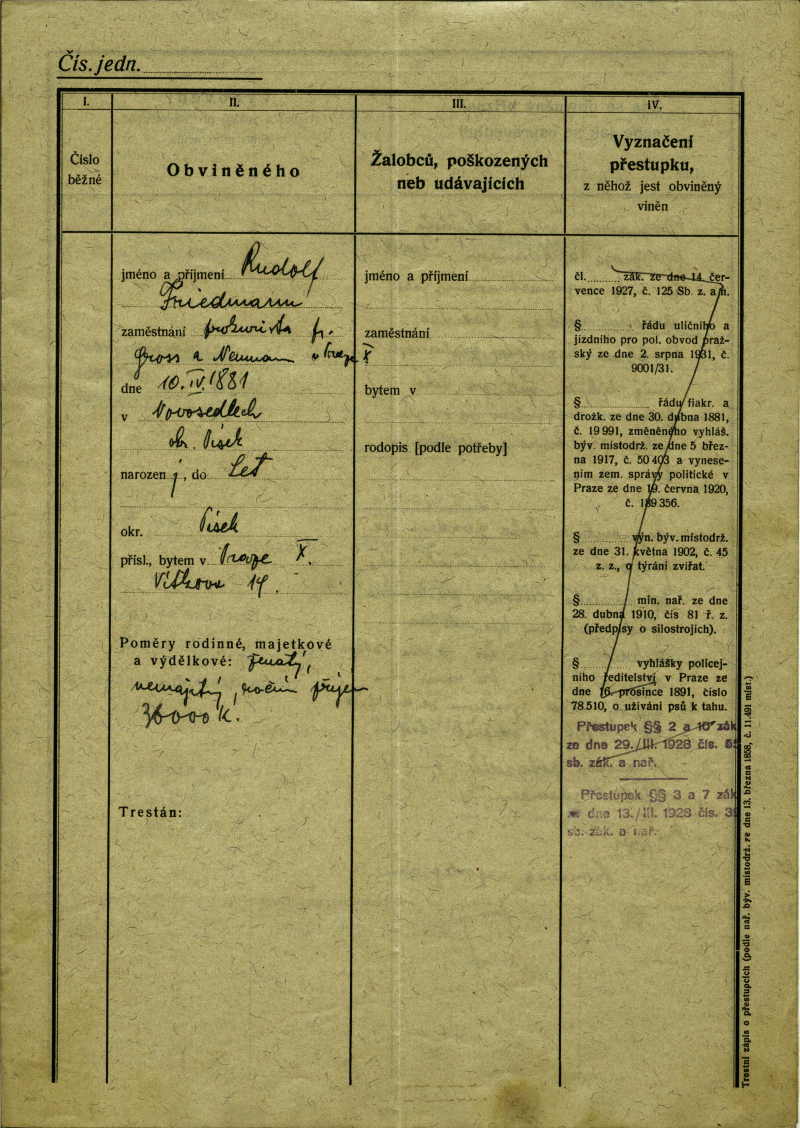 Čís. jedn.
I.
Číslo
běžné
II.
Obviněného
III.
Žalobců, poškozených
neb udávajících
IV.
Vyznačení
přestupku,
z něhož jest obviněný
viněn
jméno a příjmení Rudolf
Friedmann
zaměstnání prokurista f.
Gross a Neuman v Praze X
dne 10. IV. 1881
v Novosedlech
ok. Písek
narozen ý, do Let
okr. Písek
přísl., bytem v Praze X.
Vítkova 14.
Poměry rodinné, majetkové
a výdělkové: ženatý,
nemajetný, roční příjem
36000 K.
Trestán:
jméno a příjmení
zaměstnání
bytem v
rodopis [podle potřeby]
čl. zák. ze dne 14. čer-
vence 1927, č. 125 Sb. z. a n.
§ řádu uličního a
jízdního pro pol. obvod praž-
ský ze dne 2. srpna 1931, č.
9001/31.
§ řádu fiakr. a
drožk. ze dne 30. dubna 1881,
č. 19 991, změněného vyhláš.
býv. místodrž. ze dne 5 břez-
na 1917, č. 50 403 a vynese-
ním zem. správy politické v
Praze ze dne 19. června 1920,
č. 189 356.
§ výn. býv. místodrž.
ze dne 31. května 1902, č. 45
z. z., o týrání zvířat.
§ min. nař. ze dne
28. dubna 1910, čís 81 ř. z.
(předpisy o silostrojích).
§ vyhlášky policej-
ního ředitelství v Praze ze
dne 16. prosince 1891, číslo
78.510, o užívání psů k tahu.
Přestupek §§ 2 a 10 zák
ze dne 29./III. 1928 čís.
sb. zák. a nař.
Přestupek §§ 3 a 7 zák
ze dne 13./III. 1928 čís.
sb. zák. a nař.
Trestní zápis o přestupcích (podle nař. býv. místodrž. ze dne 13. března 1858, č. 11.491 míst.)